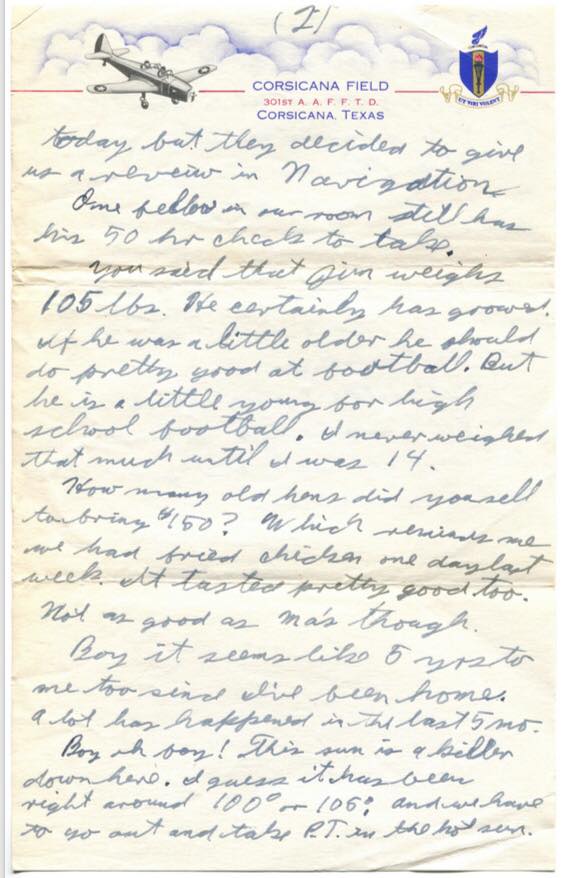 (2)
CORSICANA FIELD
301ST A. A. F. F. T. D.
CORSICANA, TEXAS
UT VIRI VOLENT
today but they decided to give
us a reveiw in Navigation.
One fellow in our room still has
his 50 hr check to take.
You said that Jim weighs
105 lbs. He certainly has grown.
If he was a little older he should
do pretty good at football. But
he is a little young for high
school football. I never weighed
that much until I was 14.
How many old hens did you sell
to bring $150? Which reminds me
we had fried chicken one day last
week. It tasted pretty good too.
Not as good as Ma's though.
Boy it seems like 5 yrs to
me too since I've been home.
A lot has happened in the last 5 mo.
Boy oh boy! This sun is a killer
down here. I guess it has been
right around 100° or 106° and we have
to go out and take P.T. in the hot sun.